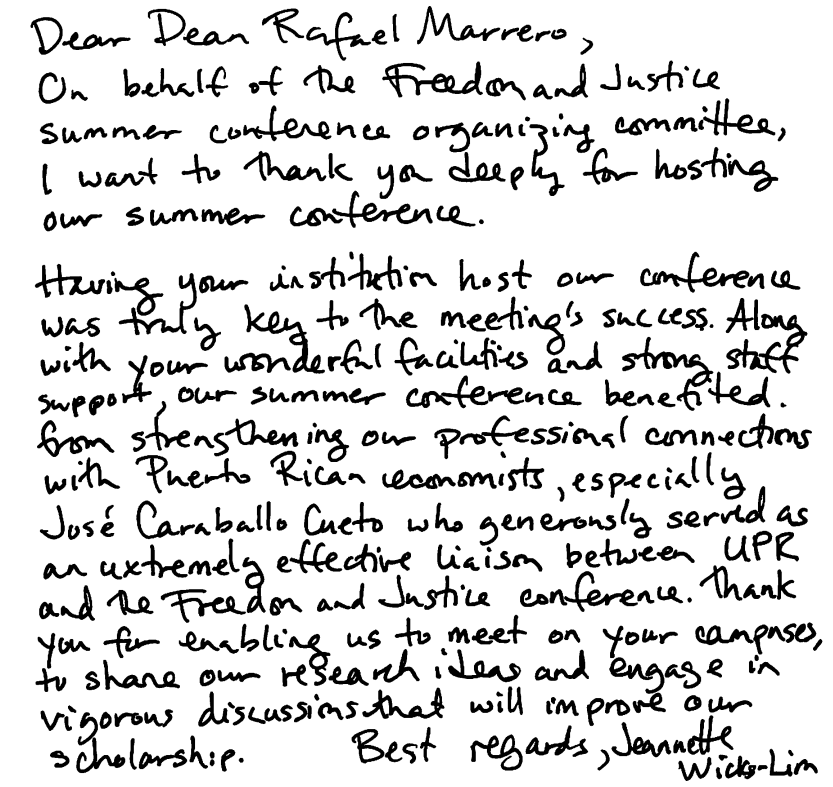 Dear Dean Rafael Marrero,
On behalf of the Freedom and Justice
summer conference organizing committee,
I want to thank you deeply for hosting
our summer conference.
Having your institution host our conference
was truly key to the meeting's success. Along
with your wonderful facilities and strong staff
support, our summer conference benefited.
from strengthening our professional connections
with Puerto Rican economists, especially
José Caraballo Cueto who generously served as
an extremely effective liaison between UPR
and the Freedom and Justice conference. Thank
you for enabling us to meet on your campuses,
to share our research ideas and engage in
vigorous discussions that will improve our
scholarship. Best regards, Jeannette
Wicks-Lim